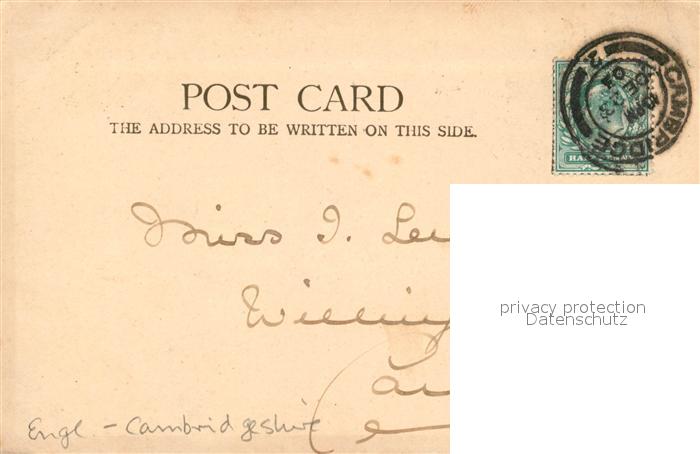 POST CARD
THE ADDRESS TO BE WRITTEN ON THIS SIDE.
CAMBRIDGE
Miss I.
privacy protection
Datenschutz
Engl - Cambridgeshire